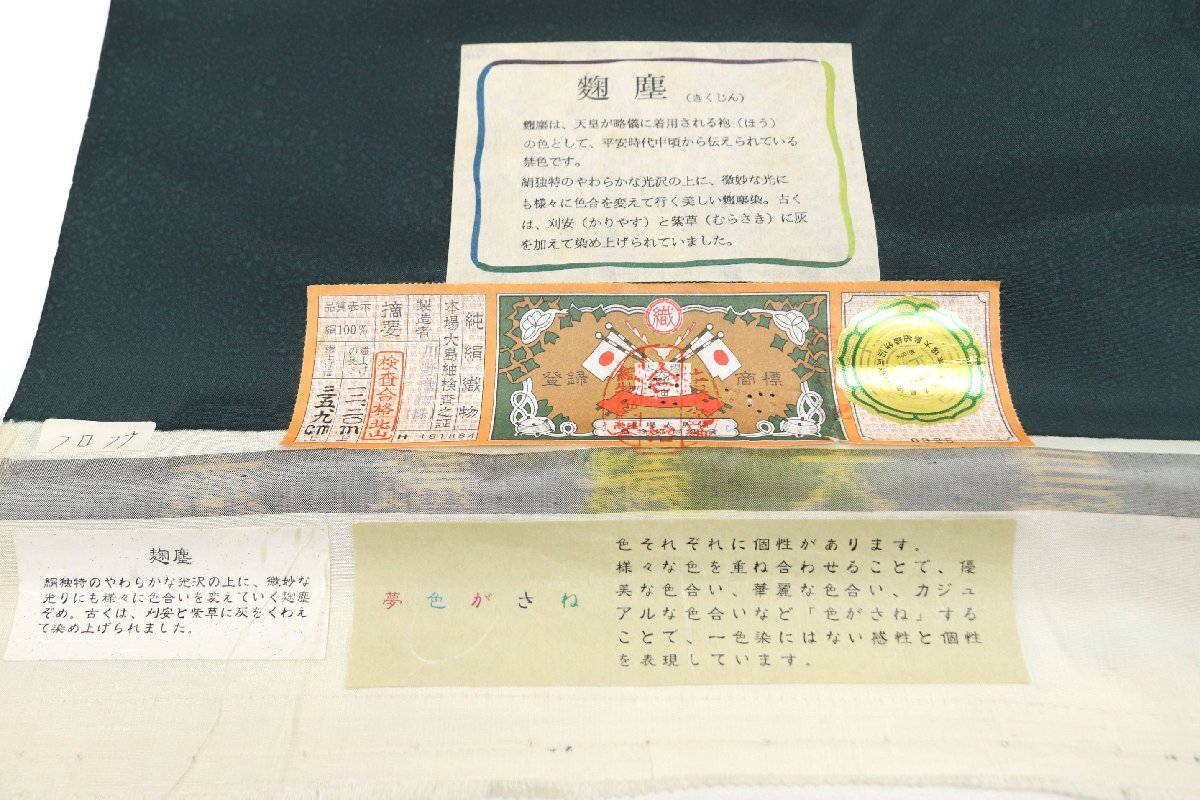 麴塵（きくじん）
麴塵は、天皇が略儀に着用される袍（ほう）
の色として、平安時代中頃から伝えられている
禁色です。
絹独特のやわらかな光沢の上に、微妙な光に
も様々に色合を変えて行く美しい麴塵染。古く
は、刈安（かりやす）と紫草（むらさき）に灰
を加えて染め上げられていました。
純絹織物
本場大島紬検査之証
製造者
摘要
検査合格
品質表示
絹100％
一二.二〇m
三五.九cm
H 161884
織
登録
商標
フロフナ
麹塵
絹独特のやわらかな光沢の上に、微妙な
光りにも様々に色合いを変えていく麹塵
ぞめ。古くは、刈安と紫草に灰をくわえ
て染め上げられました。
夢色がさね
色それぞれに個性があります。
様々な色を重ね合わせることで、優
美な色合い、華麗な色合い、カジュ
アルな色合いなど「色がさね」する
ことで、一色染にはない感性と個性
を表現しています。